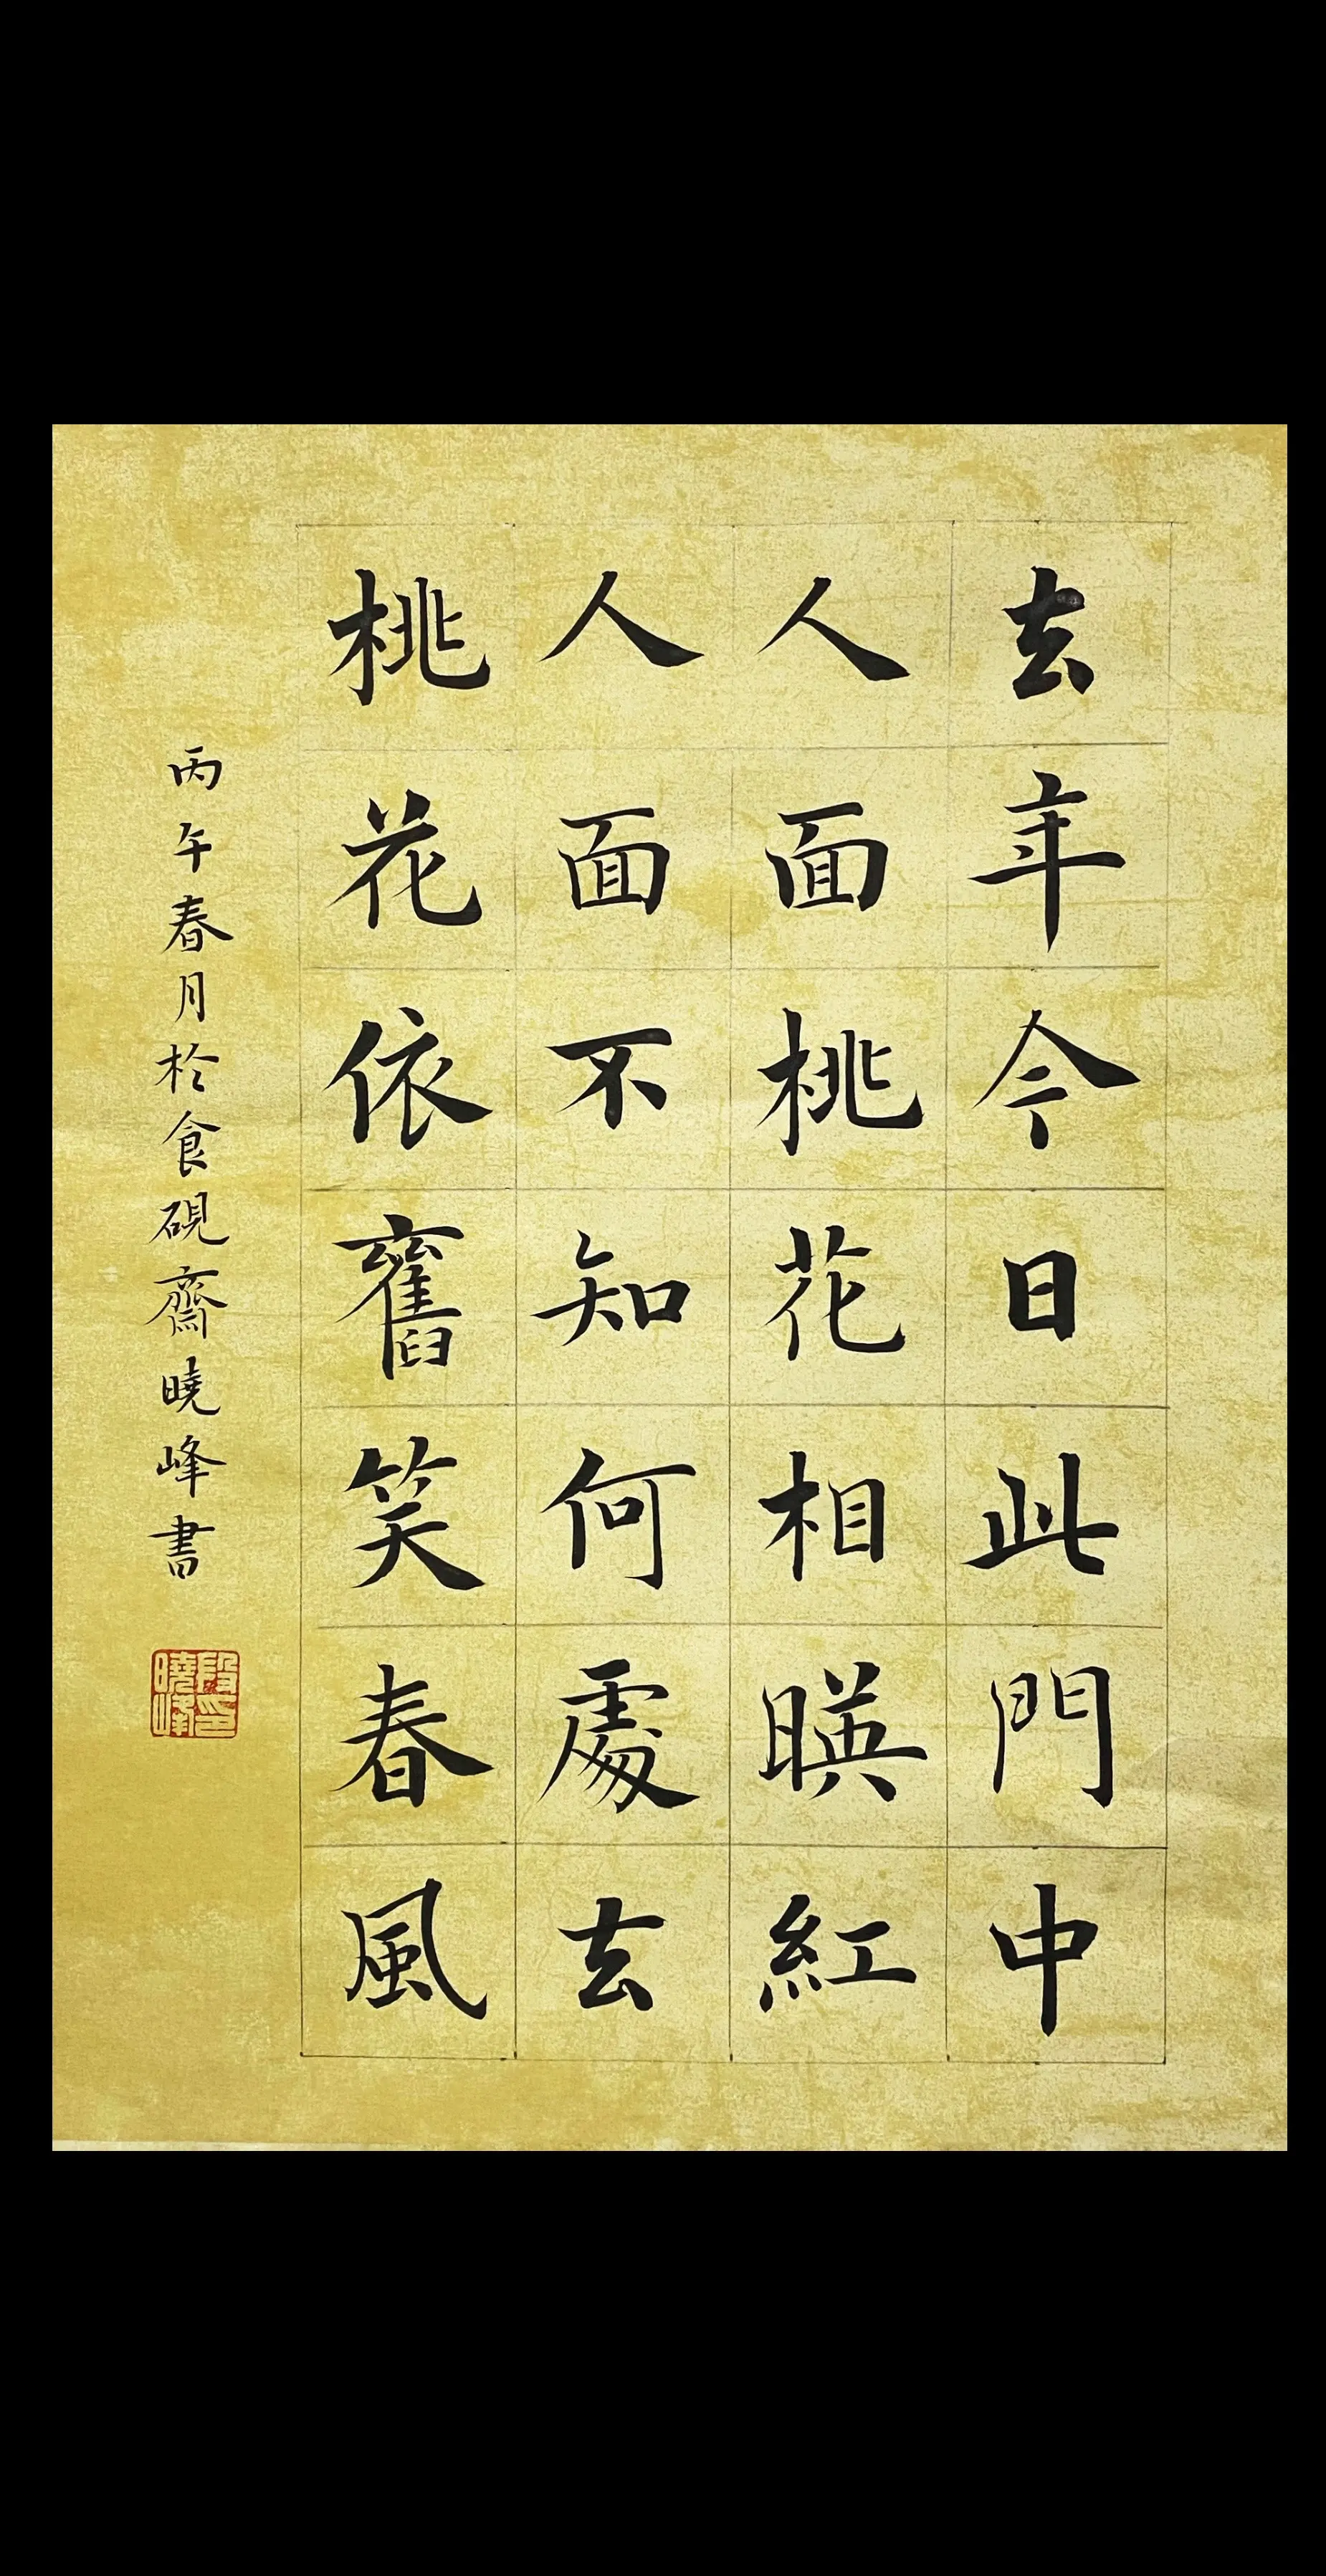 去年今日此門中
人面桃花相暎紅
人面不知何處去
桃花依舊笑春風
丙午春月於食硯齋曉峰書
段印
曉峰